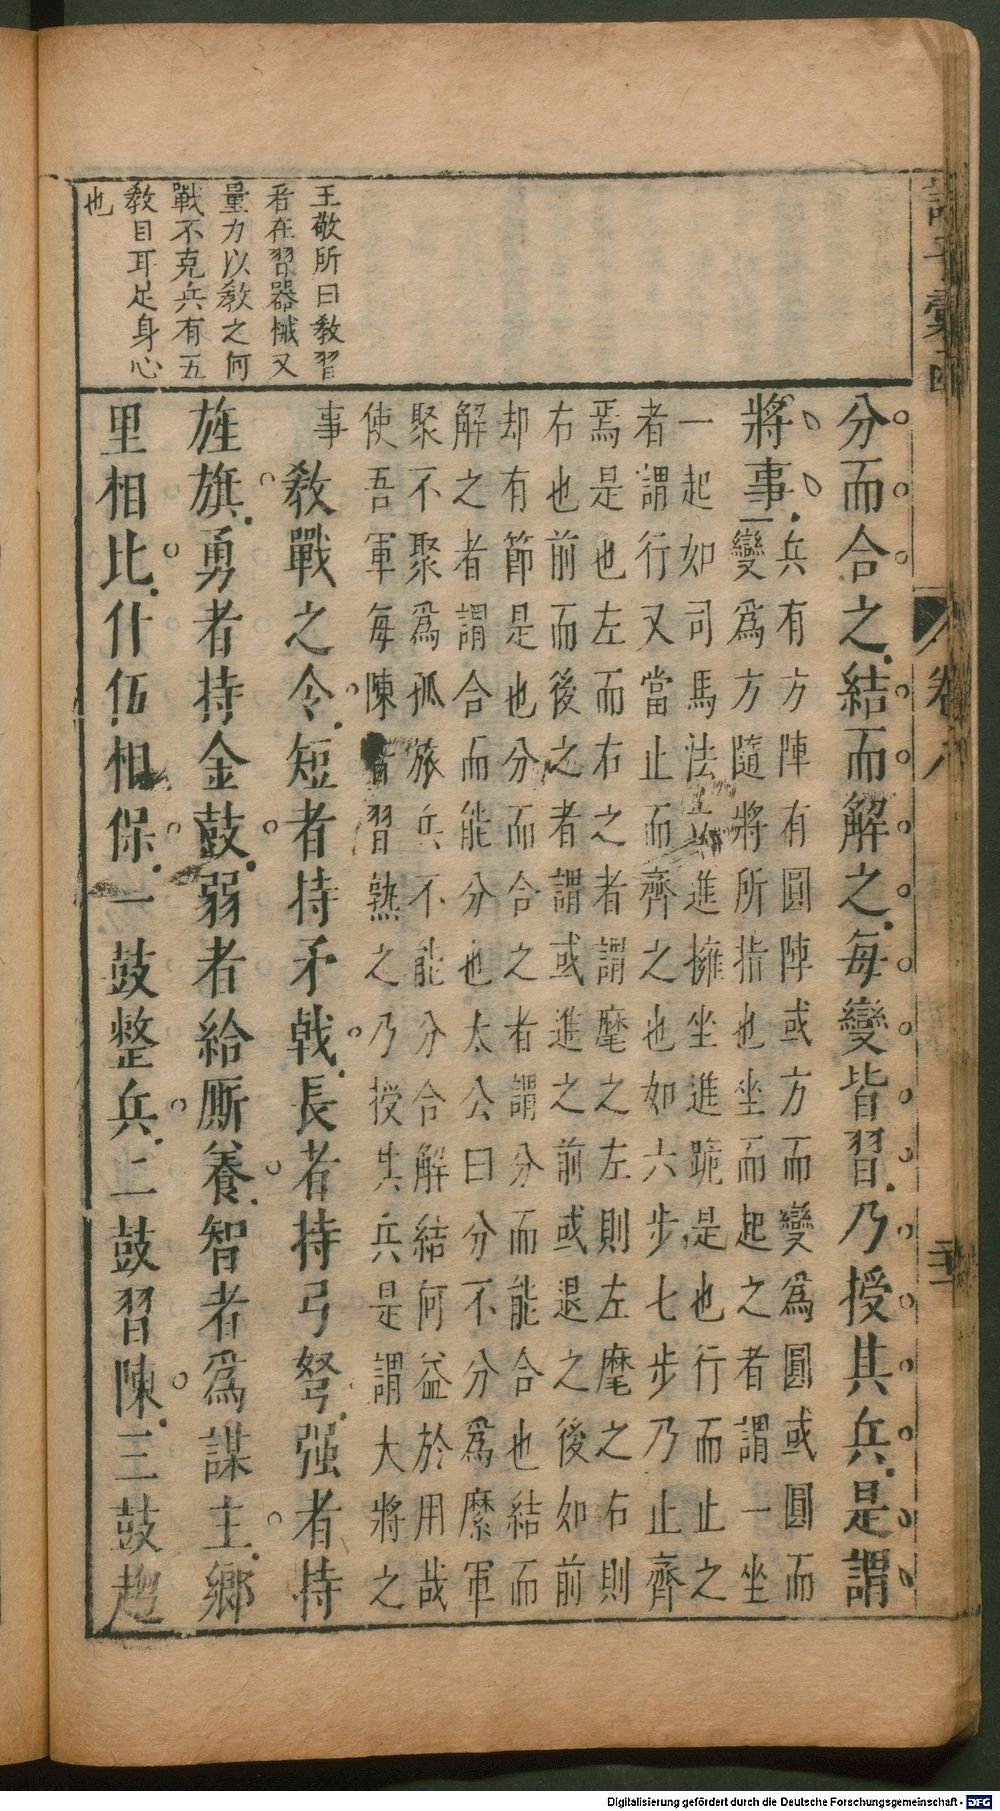 諸子彙函 卷八
王敬所曰教習
者在習器械又
量力以教之何
戰不克兵有五
教目耳足身心
也
分而合之結而解之每變皆習乃授其兵是謂
將事
兵有方陣有圓陣或方而變爲圓或圓而
變爲方隨將所指也坐而起之者謂一坐
一起如司馬法進擁坐進跪是也行而止之
者謂行又當止而齊之也如六步七步乃止齊
焉是也左而右之者謂麾之左則左麾之右則
右也前而後之者謂或進之前或退之後如前
却有節是也分而合之者謂分而能合也結而
解之者謂合而能分也太公曰分不分爲縻軍
聚不聚爲孤旅兵不能分合解結何益於用哉
使吾軍每陳皆習熟之乃授其兵是謂大將之
事
教戰之令短者持矛戟長者持弓弩强者持
旌旗勇者持金鼓弱者給厮養智者爲謀主鄉
里相比什伍相保一鼓整兵二鼓習陳三鼓趨
Digitalisierung gefördert durch die Deutsche Forschungsgemeinschaft - DFG